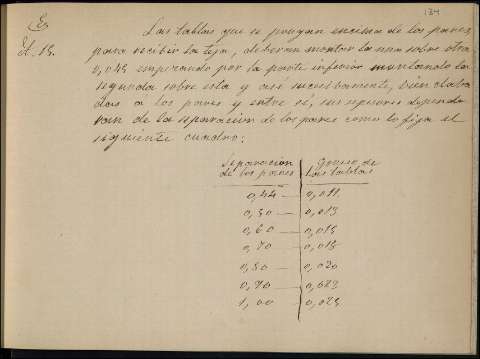 134
Las tablas que se pongan encima de los pares,
Et. 15. para recibir la teja, deberan montar la una sobre otra
0,045 empezando por la parte inferior montando la
segunda sobre esta y asi sucesivamente, bien clava
das a los pares y entre si, sus espesores dependе
ran de la separacion de los pares como lo fija el
siguiente cuadro:
Separacion de los pares | grueso de las tablas
0,44 — 0,011
0,50 — 0,013
0,60 — 0,015
0,70 — 0,018
0,80 — 0,020
0,90 — 0,023
1,00 — 0,025